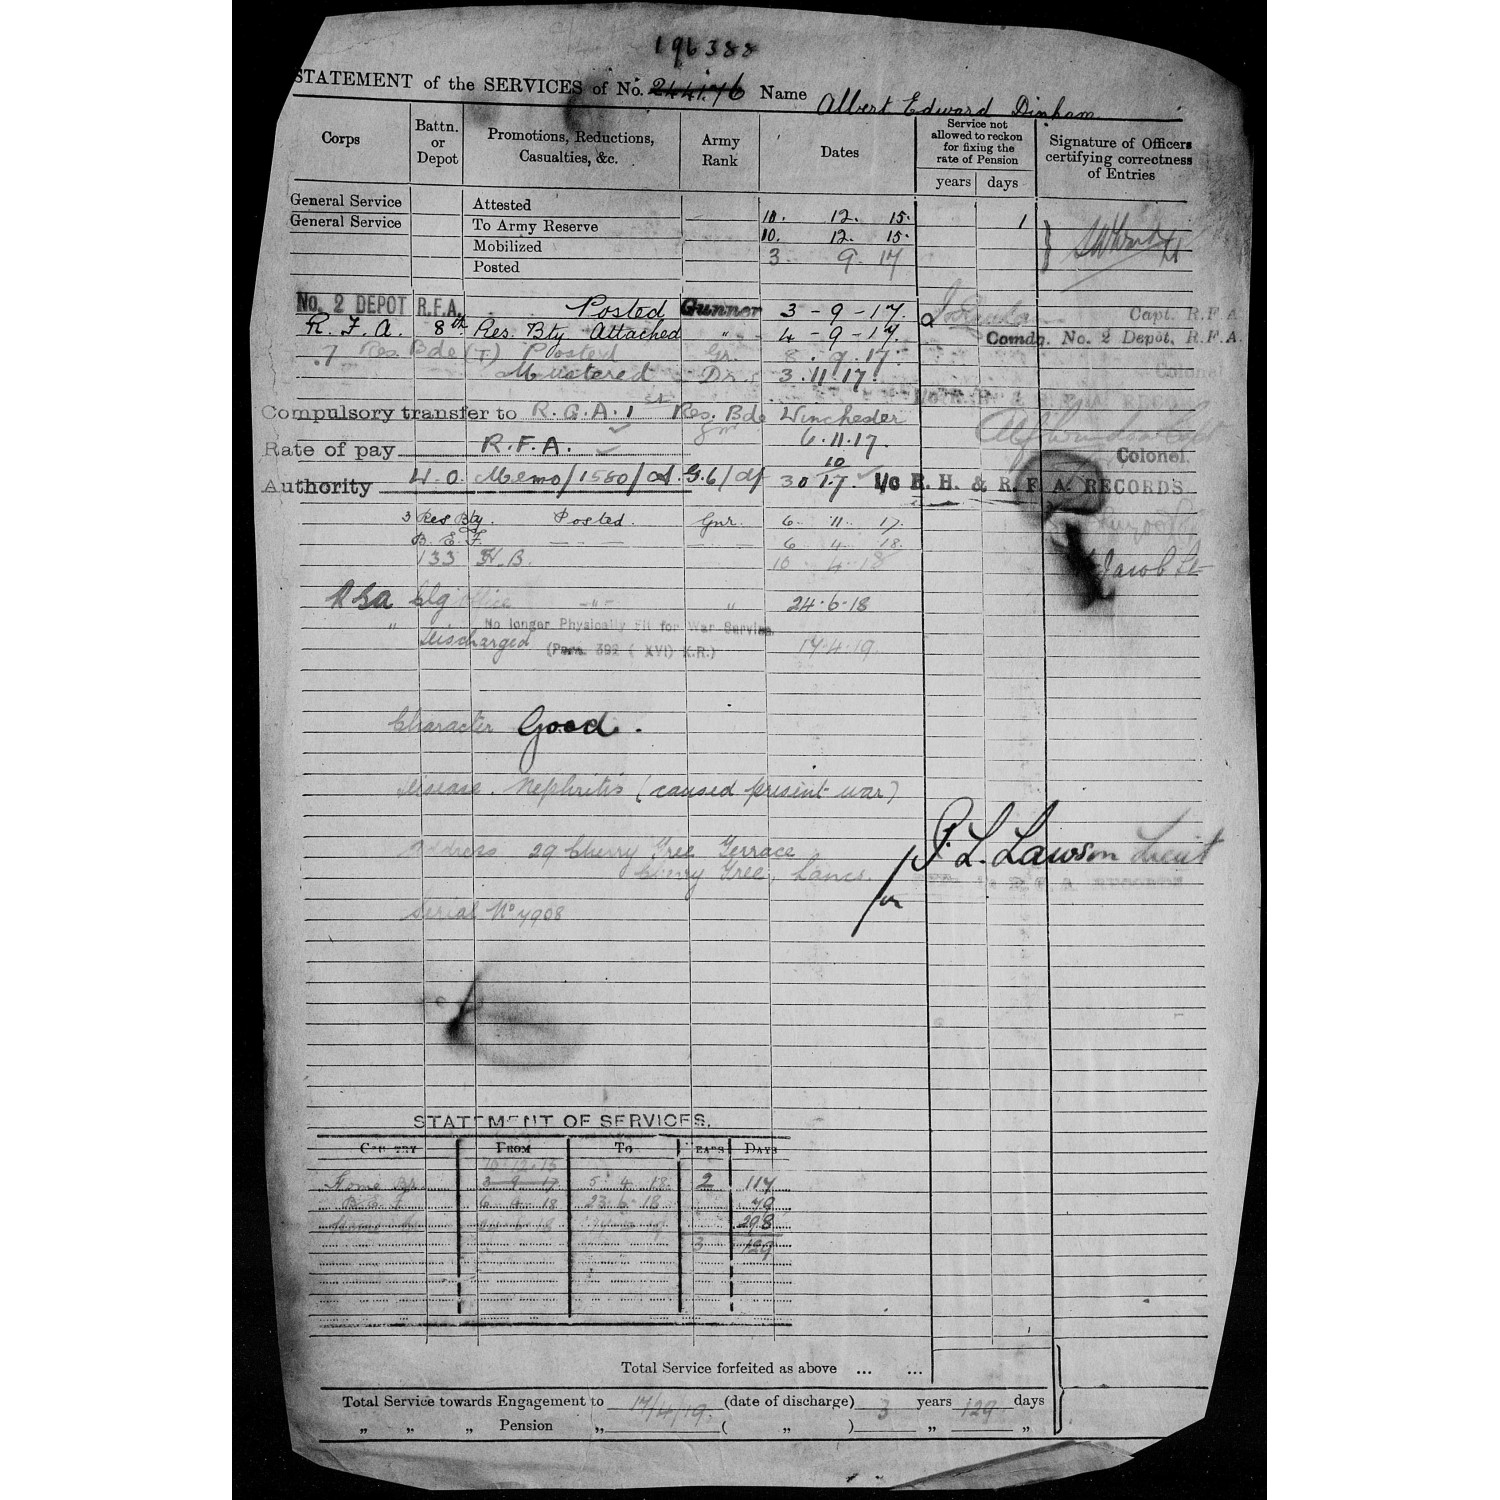 196388
STATEMENT of the SERVICES of No. 244176 Name Albert Edward Dinham
Corps
Battn. or Depot
Promotions, Reductions, Casualties, &c.
Army Rank
Dates
Service not allowed to reckon for fixing the rate of Pension
years days
Signature of Officers certifying correctness of Entries
General Service Attested 10. 12. 15. 1
General Service To Army Reserve 10. 12. 15.
Mobilized 3. 9. 17
Posted
No. 2 DEPOT R.F.A. Posted Gunner 3 - 9 - 17. Capt. R.F.A.
R. F. A. 8th Res. Bty Attached " 4 - 9 - 17. Comdg. No. 2 Depot, R.F.A.
7 Res. Bde (T) Posted Gr. 8. 9. 17. Colonel
Mustered Dr. 3. 11. 17.
Compulsory transfer to R.G.A. 1st Res. Bde Winchester
Rate of pay R.F.A. 6. 11. 17. Colonel.
Authority W. O. Memo/1580/ G.6/ 30 10 17. I/c R. H. & R. F. A. RECORDS
3 Res Bty. Posted. Gnr. 6. 11. 17.
B. E. F. 6 4 18
133 H. B. 10 4 18 Jacob Lt
RGA " " 24.6.18
" No longer Physically Fit for War Service,
Discharged (Para. 392 ( XVI) K.R.) 17.4.19.
Character Good.
Disease. Nephritis (caused present war)
Address. 29 Cherry Tree Terrace
Cherry Tree, Lancs.
for J. L. Lawson Lieut
R.F.A RECORDS
Serial No 7908
STATEMENT OF SERVICES.
COUNTRY FROM TO YEARS DAYS
10.12.15
Home 3 9 17 5 4 18 2 117
B.E.F. 6 4 18 23 6 18 79
Home 298
3 129
Total Service forfeited as above ... ...
Total Service towards Engagement to 17/4/19. (date of discharge) 3 years 129 days
" " " Pension " ( " ) " "